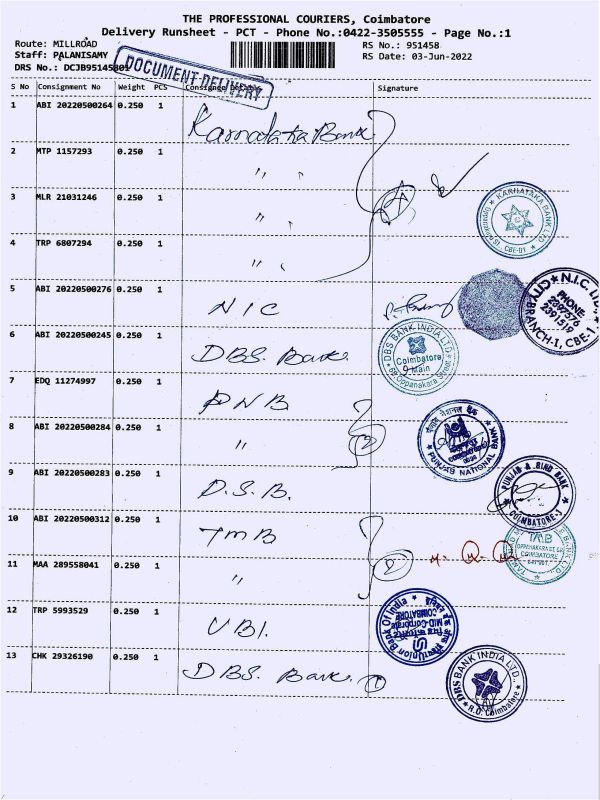 THE PROFESSIONAL COURIERS, Coimbatore
Delivery Runsheet - PCT - Phone No.:0422-3505555 - Page No.:1
Route: MILLROAD
RS No.: 951458
Staff: PALANISAMY
RS Date: 03-Jun-2022
DRS No.: DCJB95145801
DOCUMENT DELIVERY
S No Consignment No Weight PCS Consignee Details Signature
1 ABI 20220500264 0.250 1 Karnataka Bank
2 MTP 1157293 0.250 1 "
3 MLR 21031246 0.250 1 "
KARNATAKA BANK LTD
CBE-01
4 TRP 6807294 0.250 1 "
5 ABI 20220500276 0.250 1 NIC
N.I.C. LTD.
PHONE:
2397576
2391519
CITY BRANCH-I, CBE-1
6 ABI 20220500245 0.250 1 DBS. Bank.
DBS BANK INDIA LTD.
Coimbatore
Main
Oppanakara Street
7 EDQ 11274997 0.250 1 PNB
8 ABI 20220500284 0.250 1 " 2
पंजाब नैशनल बैंक
PUNJAB NATIONAL BANK
9 ABI 20220500283 0.250 1 P.S.B.
PUNJAB & SIND BANK
COIMBATORE-1
10 ABI 20220500312 0.250 1 TMB
TMB
COIMBATORE
11 MAA 289558041 0.250 1 " 2
12 TRP 5993529 0.250 1 UBI.
Union Bank Of India
MID-Corporate
COIMBATORE
13 CHK 29326190 0.250 1 DBS. Bank. 1
DBS BANK INDIA LTD.,
R.O. Coimbatore